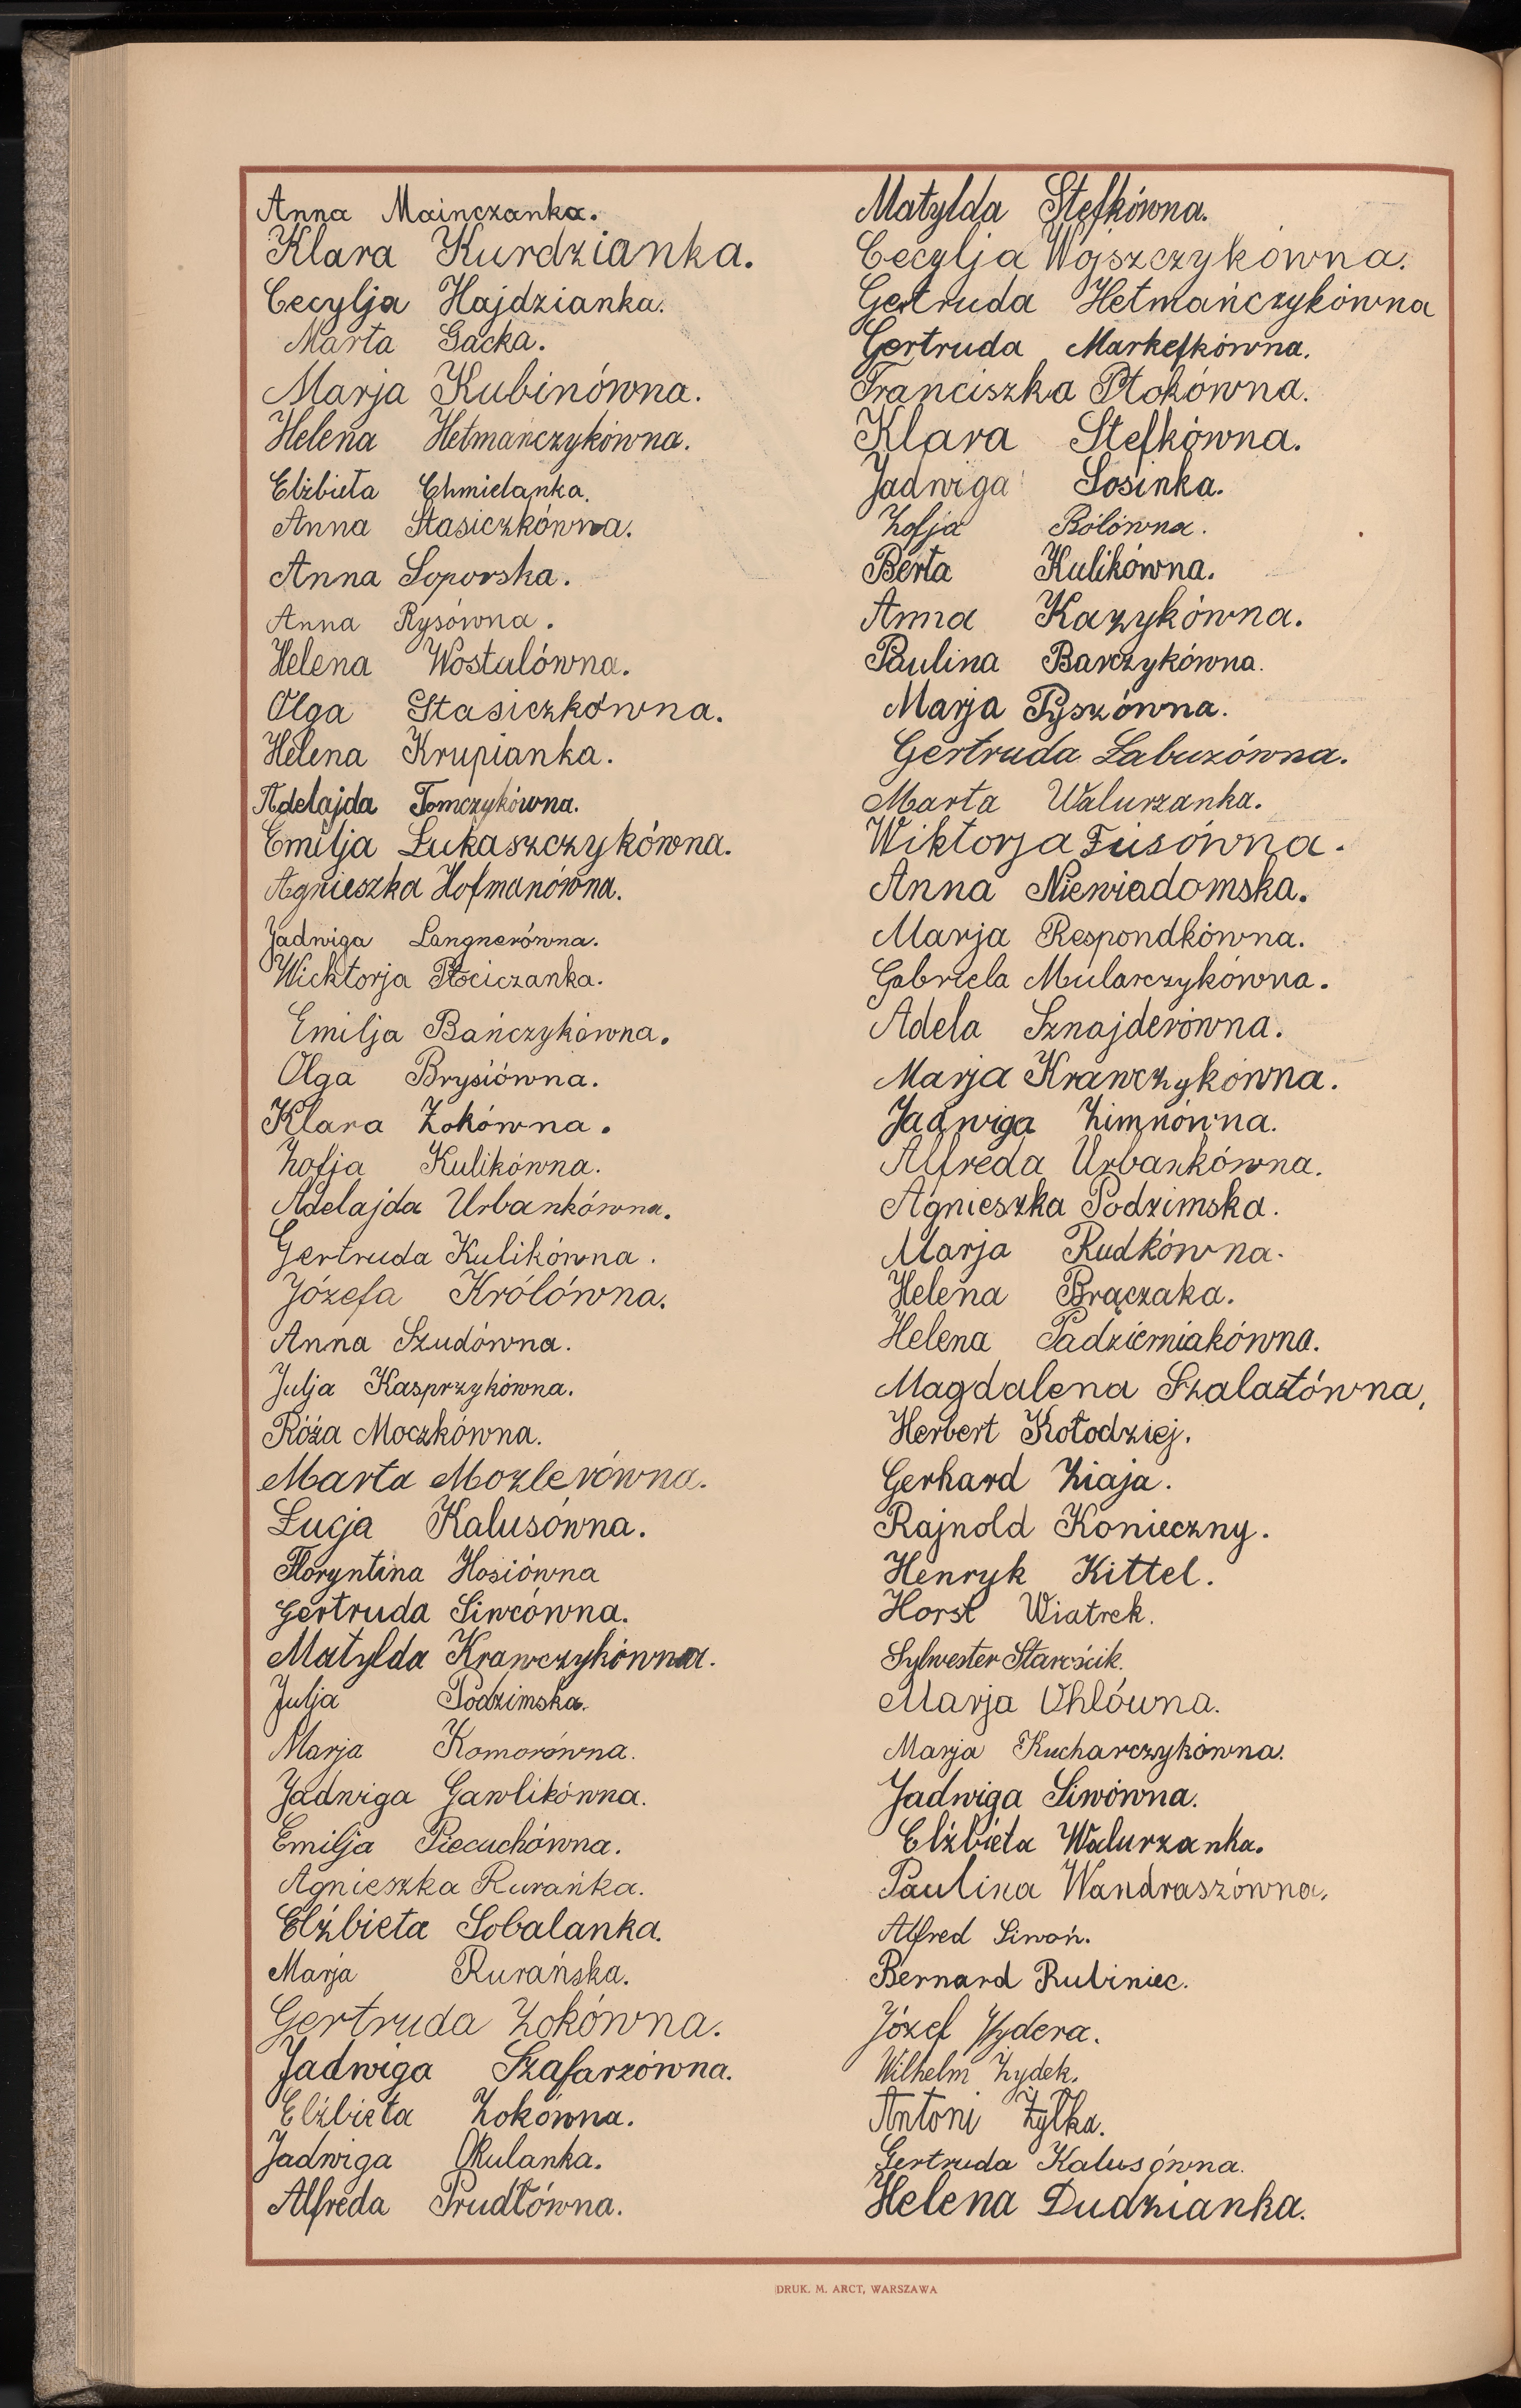 Anna Mainczanka.
Klara Kurdzianka.
Cecylja Hajdzianka.
Marta Gacka.
Marja Kubinówna.
Helena Hetmańczykówna.
Elżbieta Chmielanka.
Anna Stasiczkówna.
Anna Soporska.
Anna Rysówna.
Helena Wostalówna.
Olga Stasiczkówna.
Helena Krupianka.
Adelajda Tomczykówna.
Emilja Łukaszczykówna.
Agnieszka Hofmanówna.
Jadwiga Langnerówna.
Wicktorja Płociczanka.
Emilja Bańczykówna.
Olga Brysiówna.
Klara Żokówna.
Zofja Kulikówna.
Adelajda Urbankówna.
Gertruda Kulikówna.
Józefa Królówna.
Anna Szudówna.
Julja Kasprzykówna.
Róża Moczkówna.
Marta Mozlerówna.
Łucja Kalusówna.
Floryntina Hosiówna
Gertruda Siwcówna.
Matylda Krawczykówna.
Julja Podzimska.
Marja Komorówna.
Jadwiga Gawlikówna.
Emilja Piecuchówna.
Agnieszka Rurańka.
Elżbieta Sobalanka.
Marja Rurańska.
Gertruda Żokówna.
Jadwiga Szafarzówna.
Elżbieta Żokówna.
Jadwiga Okulanka.
Alfreda Prudłówna.
Matylda Stefkówna.
Cecylja Wojszczykówna.
Gertruda Hetmańczykówna
Gertruda Markefkówna.
Franciszka Ptokówna.
Klara Stefkówna.
Jadwiga Sosinka.
Zofja Bólówna.
Berta Kulikówna.
Anna Kazykówna.
Paulina Barczykówna.
Marja Pyszówna.
Gertruda Labuzówna.
Marta Walurzanka.
Wiktorja Fusówna.
Anna Niewiadomska.
Marja Respondkówna.
Gabriela Mularczykówna.
Adela Sznajderówna.
Marja Krawczykówna.
Jadwiga Zimnówna.
Alfreda Urbankówna.
Agnieszka Podzimska.
Marja Rudkówna.
Helena Brączaka.
Helena Padzierniakówna.
Magdalena Szalastówna,
Herbert Kołodziej.
Gerhard Ziaja.
Rajnold Konieczny.
Henryk Kittel.
Horst Wiatrek.
Sylwester Starościk.
Marja Uhlówna.
Marja Kucharczykówna.
Jadwiga Siwówna.
Elżbieta Walurzanka.
Paulina Wandraszówna.
Alfred Siwoń.
Bernard Rubiniec.
Józef Hydera.
Wilhelm Żydek.
Antoni Żyłka.
Gertruda Kalusówna.
Helena Dudzianka.
DRUK. M. ARCT, WARSZAWA